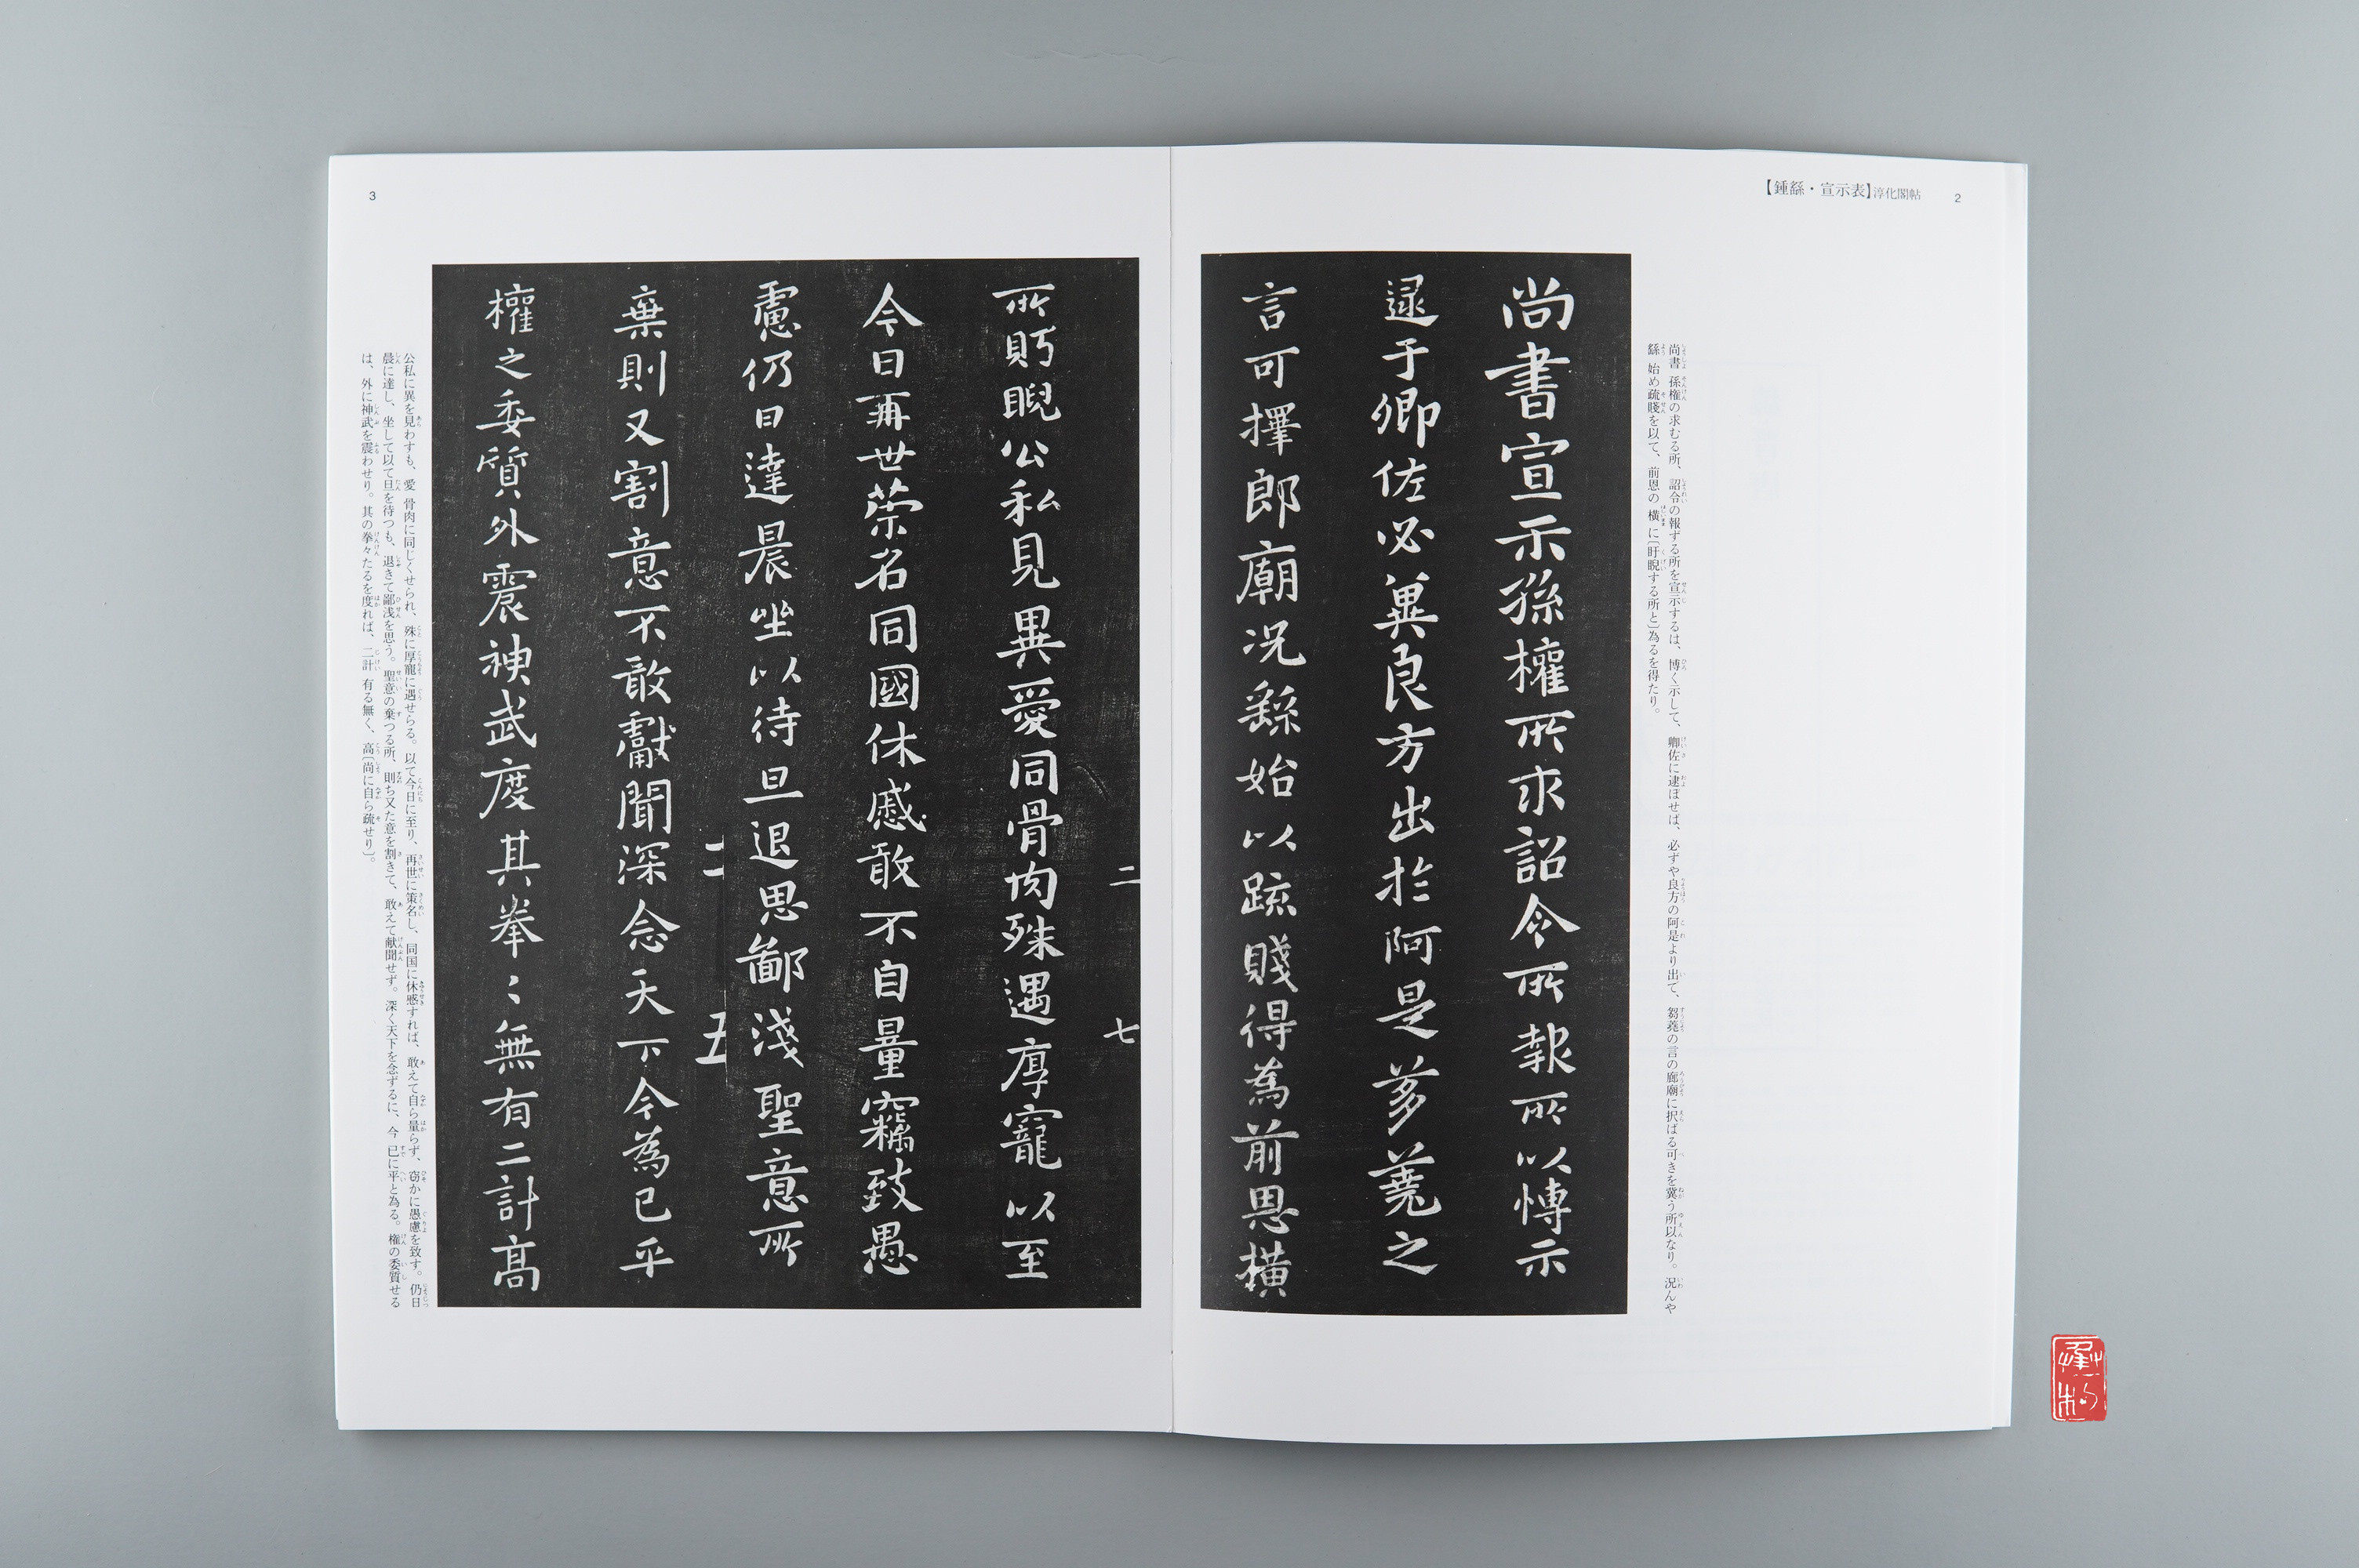 【鍾繇・宣示表】淳化閣帖
2
尚書 孫権の求むる所、詔令の報ずる所を宣示するは、博く示して、卿佐に逮ぼせば、必ずや良方の阿是より出で、芻蕘の言の廊廟に択ばる可きを冀う所以なり。況んや
繇 始め疏賤を以て、前恩の横に〔盱睨する所と〕為るを得たり。
尚書宣示孫權所求詔令所報所以愽示
逯于卿佐必兾良方出於阿是芻蕘之
言可擇郎廟況繇始以疏賤得為前恩橫
二 七
所眄睨公私見異愛同骨肉殊遇厚寵以至
今日再世荣名同國休慼敢不自量竊致愚
慮仍日達晨坐以待旦退思鄙淺聖意所
二 五
棄則又割意不敢獻聞深念天下今為已平
權之委質外震神武度其拳〻無有二計高
公私に異を見わすも、愛 骨肉に同じくせられ、殊に厚寵に遇せらる。以て今日に至り、再世に策名し、同国に休慼すれば、敢えて自ら量らず、窃かに愚慮を致す。仍日
晨に達し、坐して以て旦を待つも、退きて鄙浅を思う。聖意の棄つる所、則ち又た意を割きて、敢えて献聞せず。深く天下を念ずるに、今 已に平と為る。権の委質せる
は、外に神武を震わせり。其の拳々たるを度れば、二計 有る無く、高〔尚に自ら疏せり〕。
3